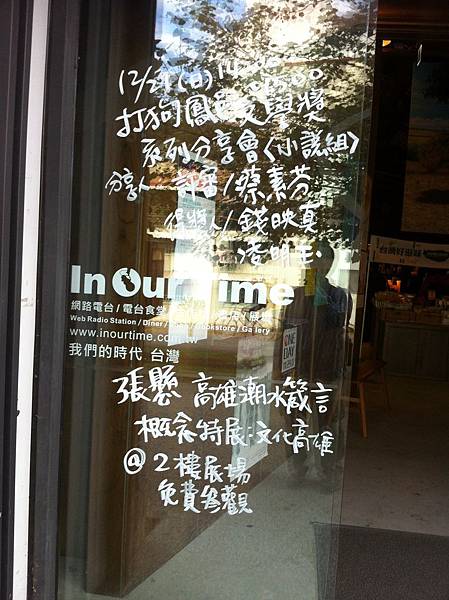 12/21(日)14:00
打狗鳳 文學獎
系列分享會〈小說組〉
分享人 評審/蔡素芬
得獎人/錢映真
凌明玉
In Our Time
網路電台/電台食堂 書店/展覽
Web Radio Station / Diner / Bookstore / Gallery
www.inourtime.com.tw
我們的時代 台灣
張懸 高雄潮水箴言
概念特展:文化高雄
@2樓展場
免費參觀
ONE
DAY
台灣好滋味